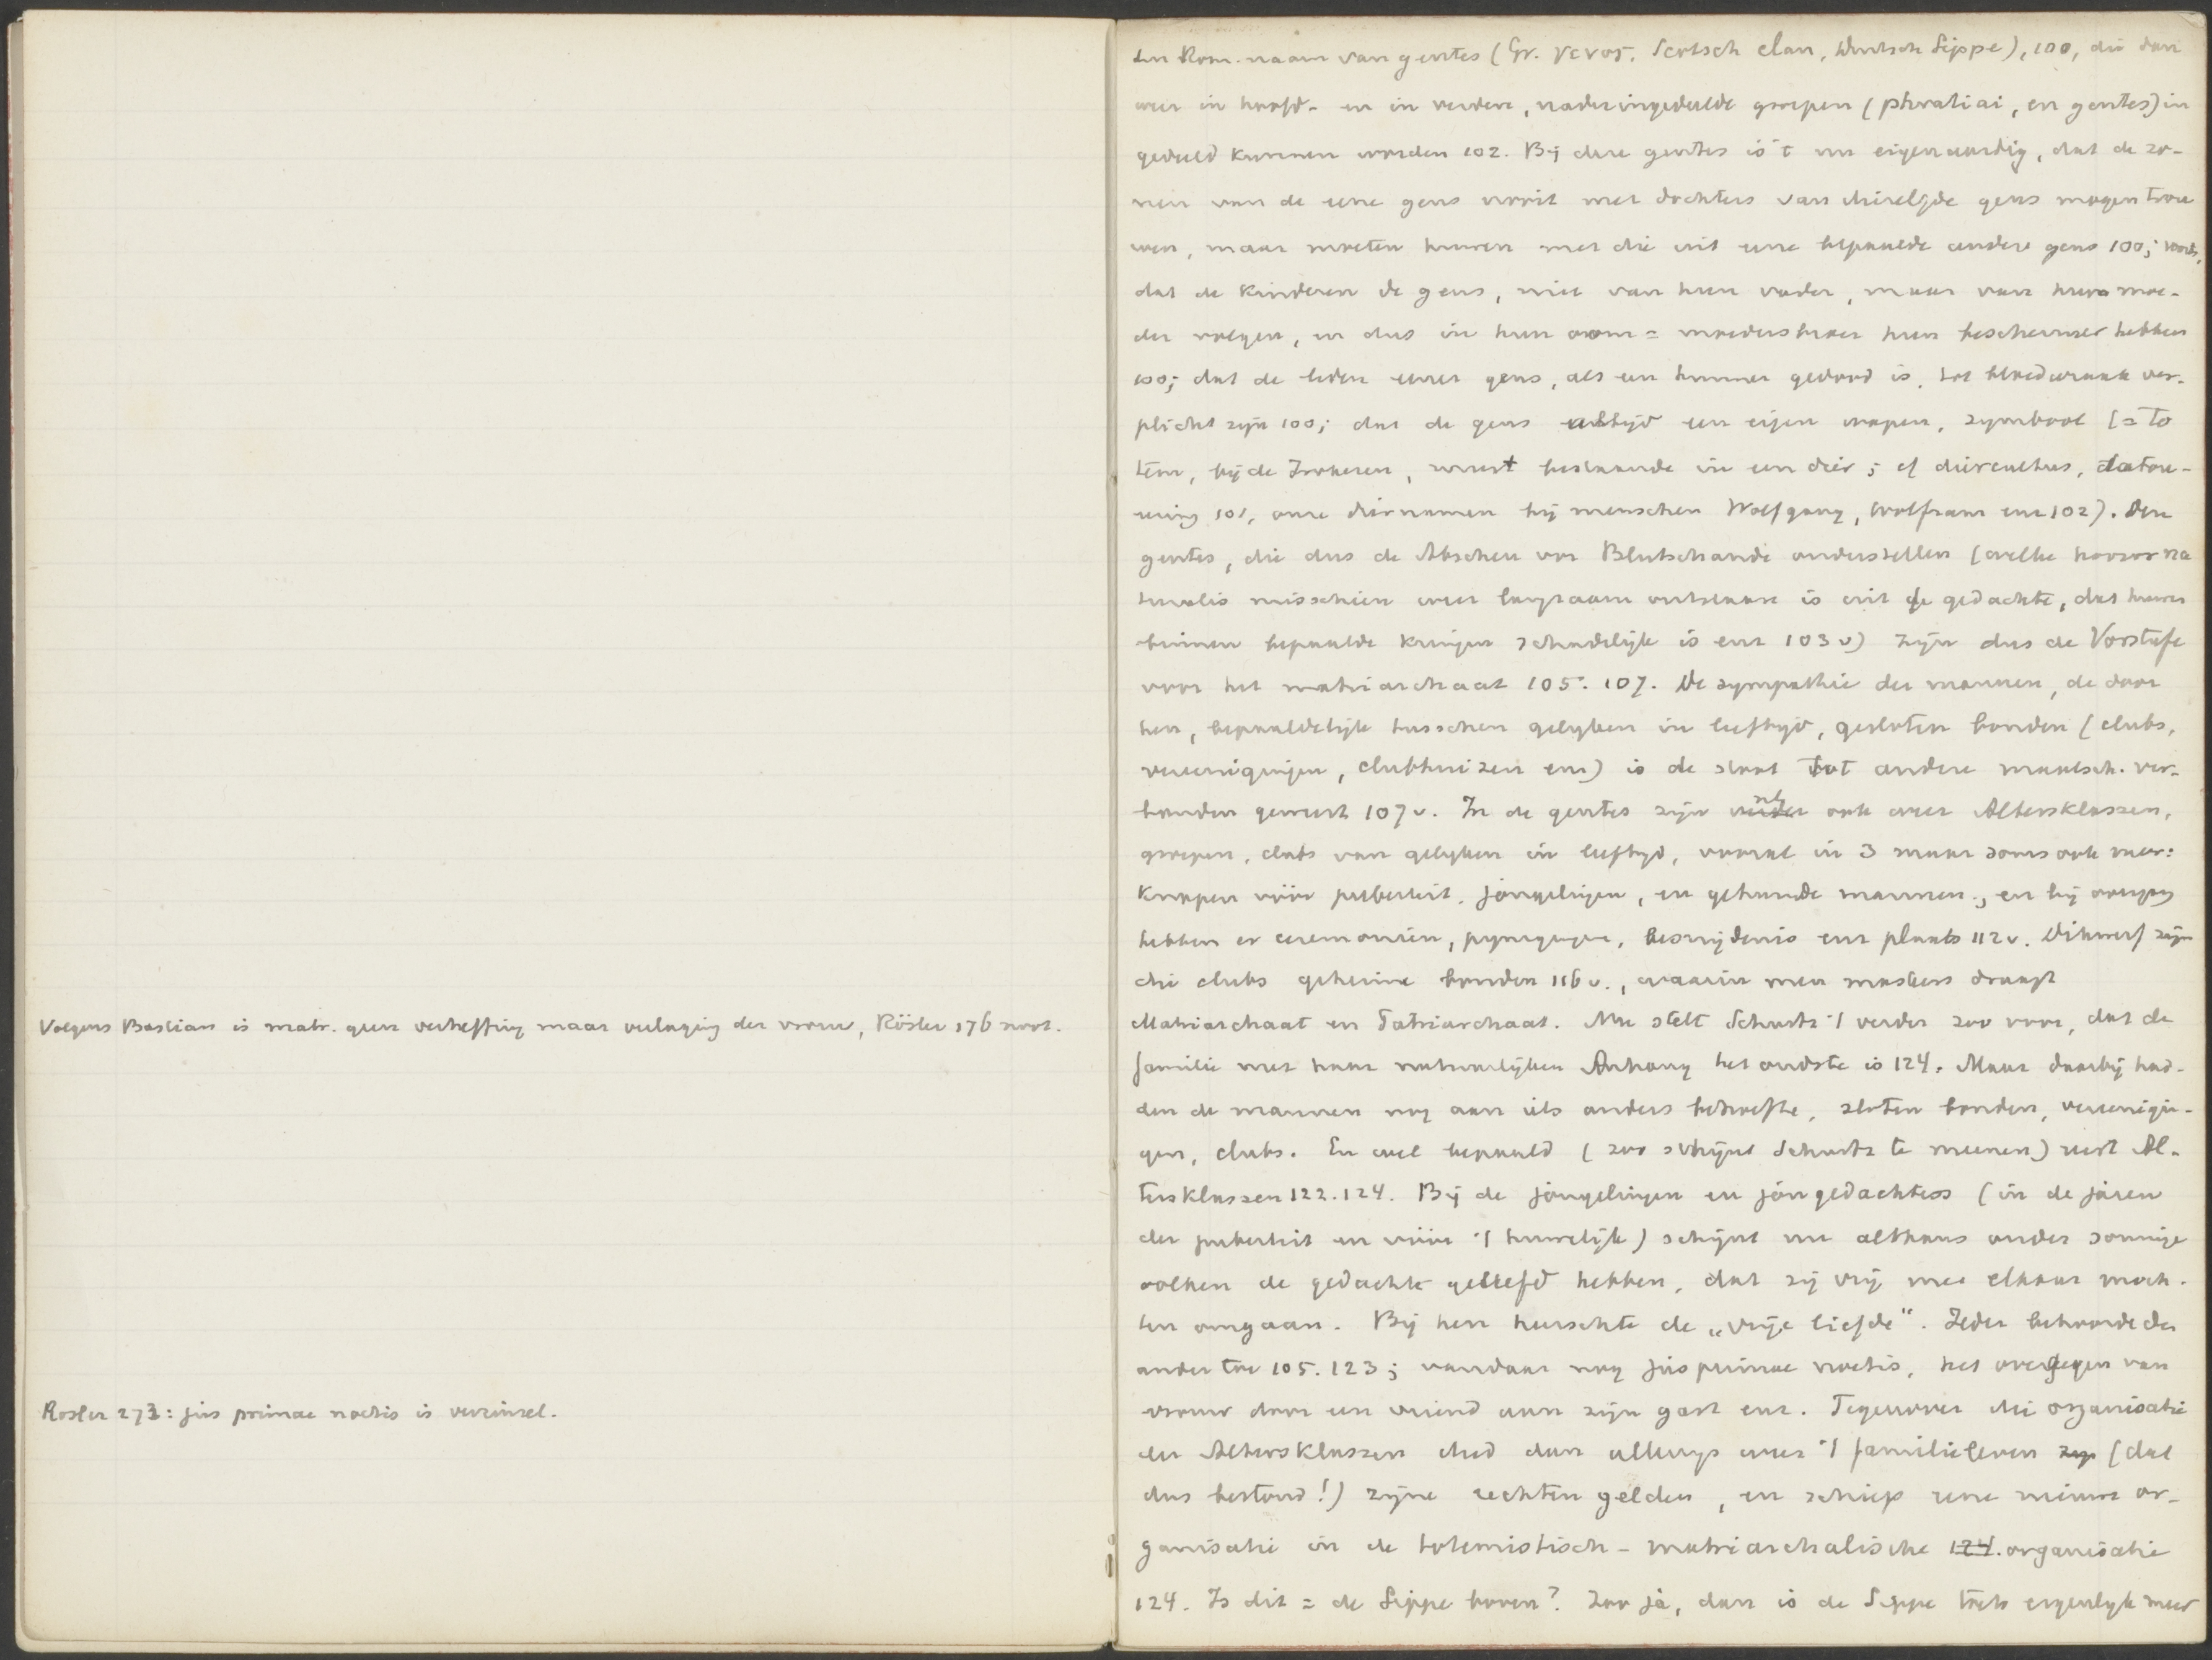 Volgens Bastian is matr. geen verheffing maar verlaging der vrouw, Rösler 176 noot.
Rosler 273: jus primae noctis is verzinsel.
den Rom. naam van gentes (Gr. γενος, Schotsch clan, Duitsch Sippe), 100, die dan
weer in hoofd- en in verdere, nader ingedeelde groepen (phratiai, en gentes) in
gedeeld kunnen worden 102. Bij deze gentes is 't nu eigenaardig, dat de zo-
nen van de eene gens nooit met dochters van diezelfde gens mogen trou
wen, maar moeten huwen met die uit eene bepaalde andere gens 100; voorts,
dat de kinderen de gens, niet van hun vader, maar van hun moe-
der volgen, en dus in hun oom = moedersbroer hun beschermer hebben
100; dat de leden eener gens, als een hunner gedood is, tot bloedwraak ver-
plicht zijn 100; dat de gens altijd een eigen wapen, symbool (= to
tem, bij de Irokezen, meest bestaande in een dier; cf diercultus, tatou-
eering 101, onze diernamen bij menschen Wolfgang, Wolfram enz 102). Deze
gentes, die dus de Abscheu vor Blutschande onderstellen (welke horror na
turalis misschien weer langzaam ontstaan is uit de gedachte, dat huwen
binnen bepaalde kringen schadelijk is enz 103 v) zijn dus de Vorstufe
voor het matriarchaat 105. 107. De sympathie der mannen, de door
hen, bepaaldelijk tusschen gelijken in leeftijd, gesloten bonden (clubs,
vereenigingen, clubhuizen enz) is de stoot tot andere maatsch. ver-
banden geweest 107 v. In de gentes zijn nl ook weer Altersklassen,
groepen, clubs van gelijken in leeftijd, vooral in 3 maar soms ook meer:
knapen vóór puberteit, jongelingen, en gehuwde mannen; en bij overgang
hebben er ceremoniën, pijnigingen, besnijdenis enz plaats 112 v. Dikwerf zijn
die clubs geheime bonden 116 v., waarin men maskers draagt
Matriarchaat en Patriarchaat. Nu stelt Schurtz 't verder zoo voor, dat de
familie met haar natuurlijken Anhang het oudste is 124. Maar daarbij had-
den de mannen nog aan iets anders behoefte, sloten bonden, vereenigin-
gen, clubs. En wel bepaald (zoo schijnt Schurtz te meenen) eerst Al-
tersklassen 122. 124. Bij de jongelingen en jongedochters (in de jaren
der puberteit en vóór 't huwelijk) schijnt nu althans onder sommige
volken de gedachte geleefd hebben, dat zij vrij met elkaar moch-
ten omgaan. Bij hen heerschte de „vrije liefde". Ieder behoorde der
ander toe 105. 123; vandaar nog jus primae noctis, het overgeven van
vrouw door een vriend aan zijn gast enz. Tegenover die organisatie
der Altersklassen deed dan allengs weer 't familieleven (dat
dus bestond!) zijne rechten gelden, en schiep eene nieuwe or-
ganisatie in de totemistisch-matriarchalische 124. organisatie
124. Is dit = de Sippe boven? Zoo ja, dan is de Sippe toch eigenlijk meer